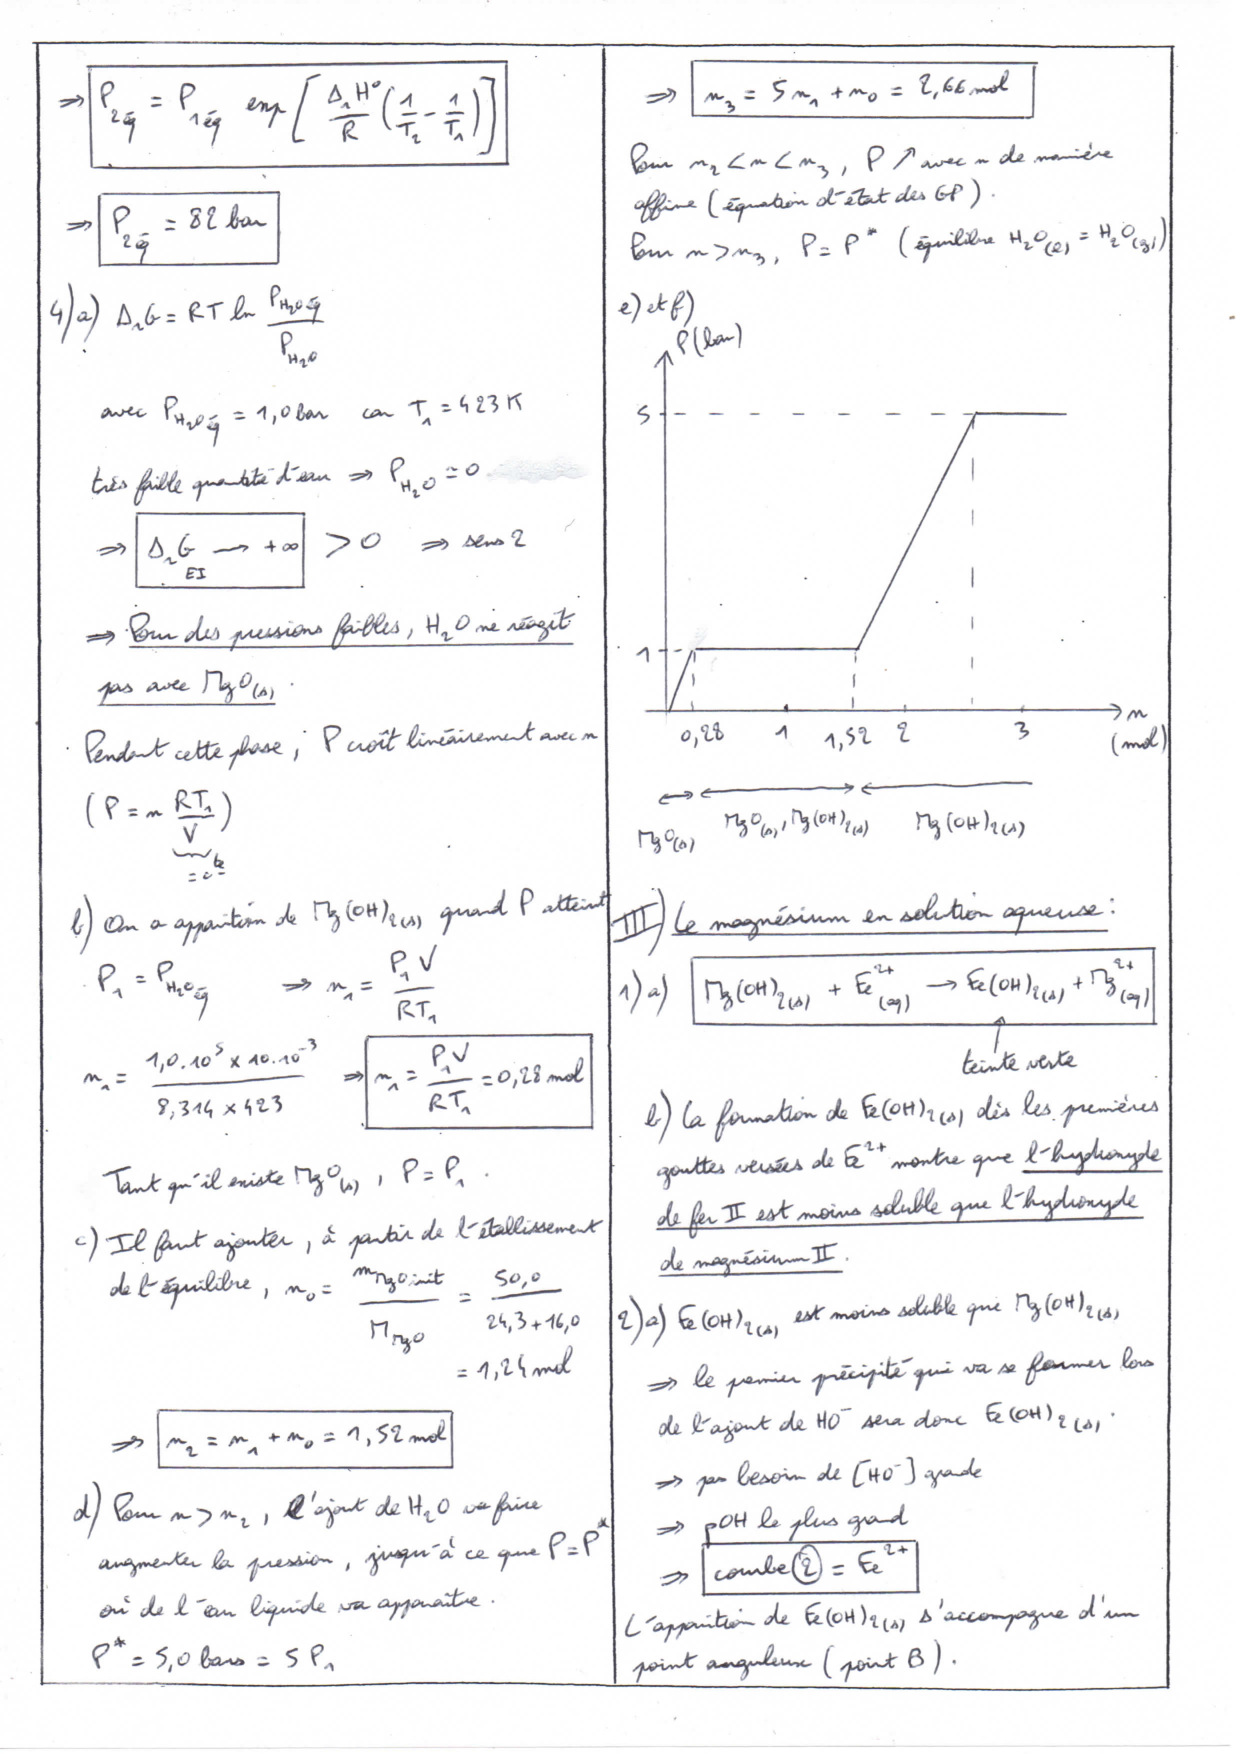 ⇒ P₂éq = P₁éq exp [ ΔrH°/R (1/T₂ - 1/T₁) ]
⇒ P₂éq = 82 bar
4) a) ΔrG = RT ln P_H₂Oéq / P_H₂O
avec P_H₂Oéq = 1,0 bar car T₁ = 423 K
très faible quantité d'eau ⇒ P_H₂O ≃ 0
⇒ ΔrG_EI → +∞ > 0 ⇒ sens 2
⇒ Pour des pressions faibles, H₂O ne réagit
pas avec MgO(s).
Pendant cette phase, P croît linéairement avec n
(P = n RT₁/V)
= cte
b) On a apparition de Mg(OH)₂(s) quand P atteint
P₁ = P_H₂Oéq ⇒ n₁ = P₁V / RT₁
n₁ = 1,0.10⁵ × 10.10⁻³ / 8,314 × 423 ⇒ n₁ = P₁V / RT₁ = 0,28 mol
Tant qu'il existe MgO(s), P = P₁.
c) Il faut ajouter, à partir de l'établissement
de l'équilibre, n₀ = m_MgO init / M_MgO = 50,0 / 24,3 + 16,0
= 1,24 mol
⇒ n₂ = n₁ + n₀ = 1,52 mol
d) Pour n > n₂, l'ajout de H₂O va faire
augmenter la pression, jusqu'à ce que P = P*
où de l'eau liquide va apparaître.
P* = 5,0 bars = 5 P₁
⇒ n₃ = 5n₁ + n₀ = 2,66 mol
Pour n₂ < n < n₃, P ↗ avec n de manière
affine (équation d'état des GP).
Pour n > n₃, P = P* (équilibre H₂O(l) = H₂O(g))
e) et f)
P (bar)
5
1
0,28 1 1,52 2 3 n
(mol)
MgO(s) MgO(s), Mg(OH)₂(s) Mg(OH)₂(s)
III) Le magnésium en solution aqueuse :
1) a) Mg(OH)₂(s) + Fe²⁺(aq) → Fe(OH)₂(s) + Mg²⁺(aq)
teinte verte
b) La formation de Fe(OH)₂(s) dès les premières
gouttes versées de Fe²⁺ montre que l'hydroxyde
de fer II est moins soluble que l'hydroxyde
de magnésium II.
2) a) Fe(OH)₂(s) est moins soluble que Mg(OH)₂(s)
⇒ le premier précipité qui va se former lors
de l'ajout de HO⁻ sera donc Fe(OH)₂(s).
⇒ pas besoin de [HO⁻] grande
⇒ pOH le plus grand
⇒ courbe ② = Fe²⁺
L'apparition de Fe(OH)₂(s) s'accompagne d'un
point anguleux (point B).